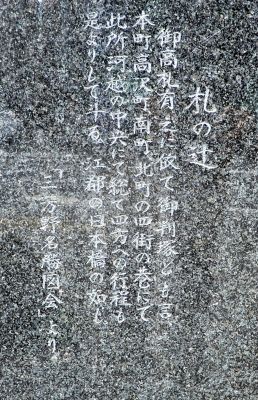 札の辻
御高札有之に依て御判塚とも言、
本町高沢町南町北町の四街の巷にて
此所河越の中央にて総て四方への行程も
是よりして十る、江都の日本橋の如し
「三芳野名勝図会」より